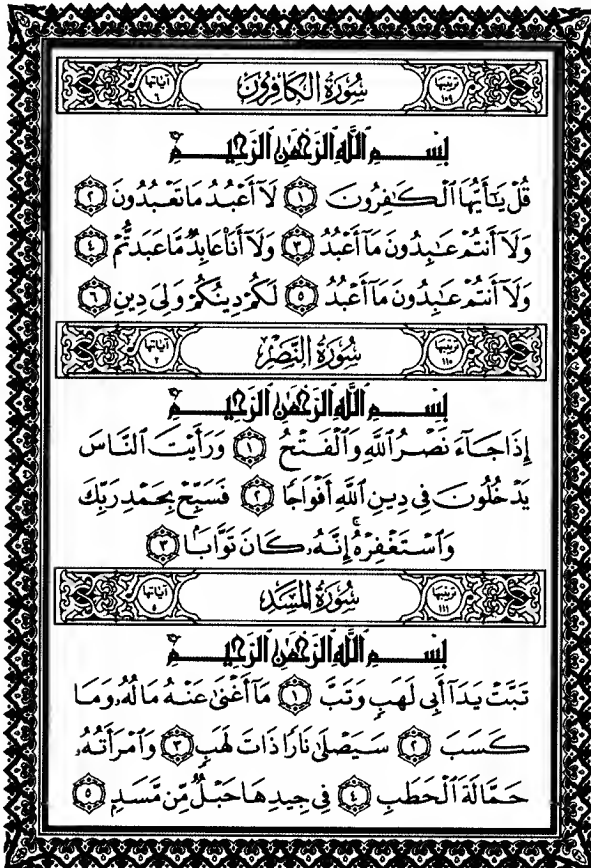 ترتيبها ١٠٩ سُورَةُ الْكَافِرُونَ آياتها ٦
بِسْمِ اللَّهِ الرَّحْمَٰنِ الرَّحِيمِ
قُلْ يَـٰٓأَيُّهَا ٱلْكَـٰفِرُونَ ١ لَآ أَعْبُدُ مَا تَعْبُدُونَ ٢
وَلَآ أَنتُمْ عَـٰبِدُونَ مَآ أَعْبُدُ ٣ وَلَآ أَنَا۠ عَابِدٌ مَّا عَبَدتُّمْ ٤
وَلَآ أَنتُمْ عَـٰبِدُونَ مَآ أَعْبُدُ ٥ لَكُمْ دِينُكُمْ وَلِىَ دِينِ ٦
ترتيبها ١١٠ سُورَةُ النَّصْرِ آياتها ٣
بِسْمِ اللَّهِ الرَّحْمَٰنِ الرَّحِيمِ
إِذَا جَآءَ نَصْرُ ٱللَّهِ وَٱلْفَتْحُ ١ وَرَأَيْتَ ٱلنَّاسَ
يَدْخُلُونَ فِى دِينِ ٱللَّهِ أَفْوَاجًا ٢ فَسَبِّحْ بِحَمْدِ رَبِّكَ
وَٱسْتَغْفِرْهُ ۚ إِنَّهُۥ كَانَ تَوَّابًۢا ٣
ترتيبها ١١١ سُورَةُ الْمَسَدِ آياتها ٥
بِسْمِ اللَّهِ الرَّحْمَٰنِ الرَّحِيمِ
تَبَّتْ يَدَآ أَبِى لَهَبٍ وَتَبَّ ١ مَآ أَغْنَىٰ عَنْهُ مَالُهُۥ وَمَا
كَسَبَ ٢ سَيَصْلَىٰ نَارًا ذَاتَ لَهَبٍ ٣ وَٱمْرَأَتُهُۥ
حَمَّالَةَ ٱلْحَطَبِ ٤ فِى جِيدِهَا حَبْلٌ مِّن مَّسَدٍۭ ٥